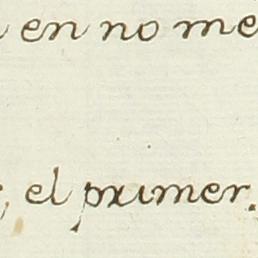 en no me
el primer.